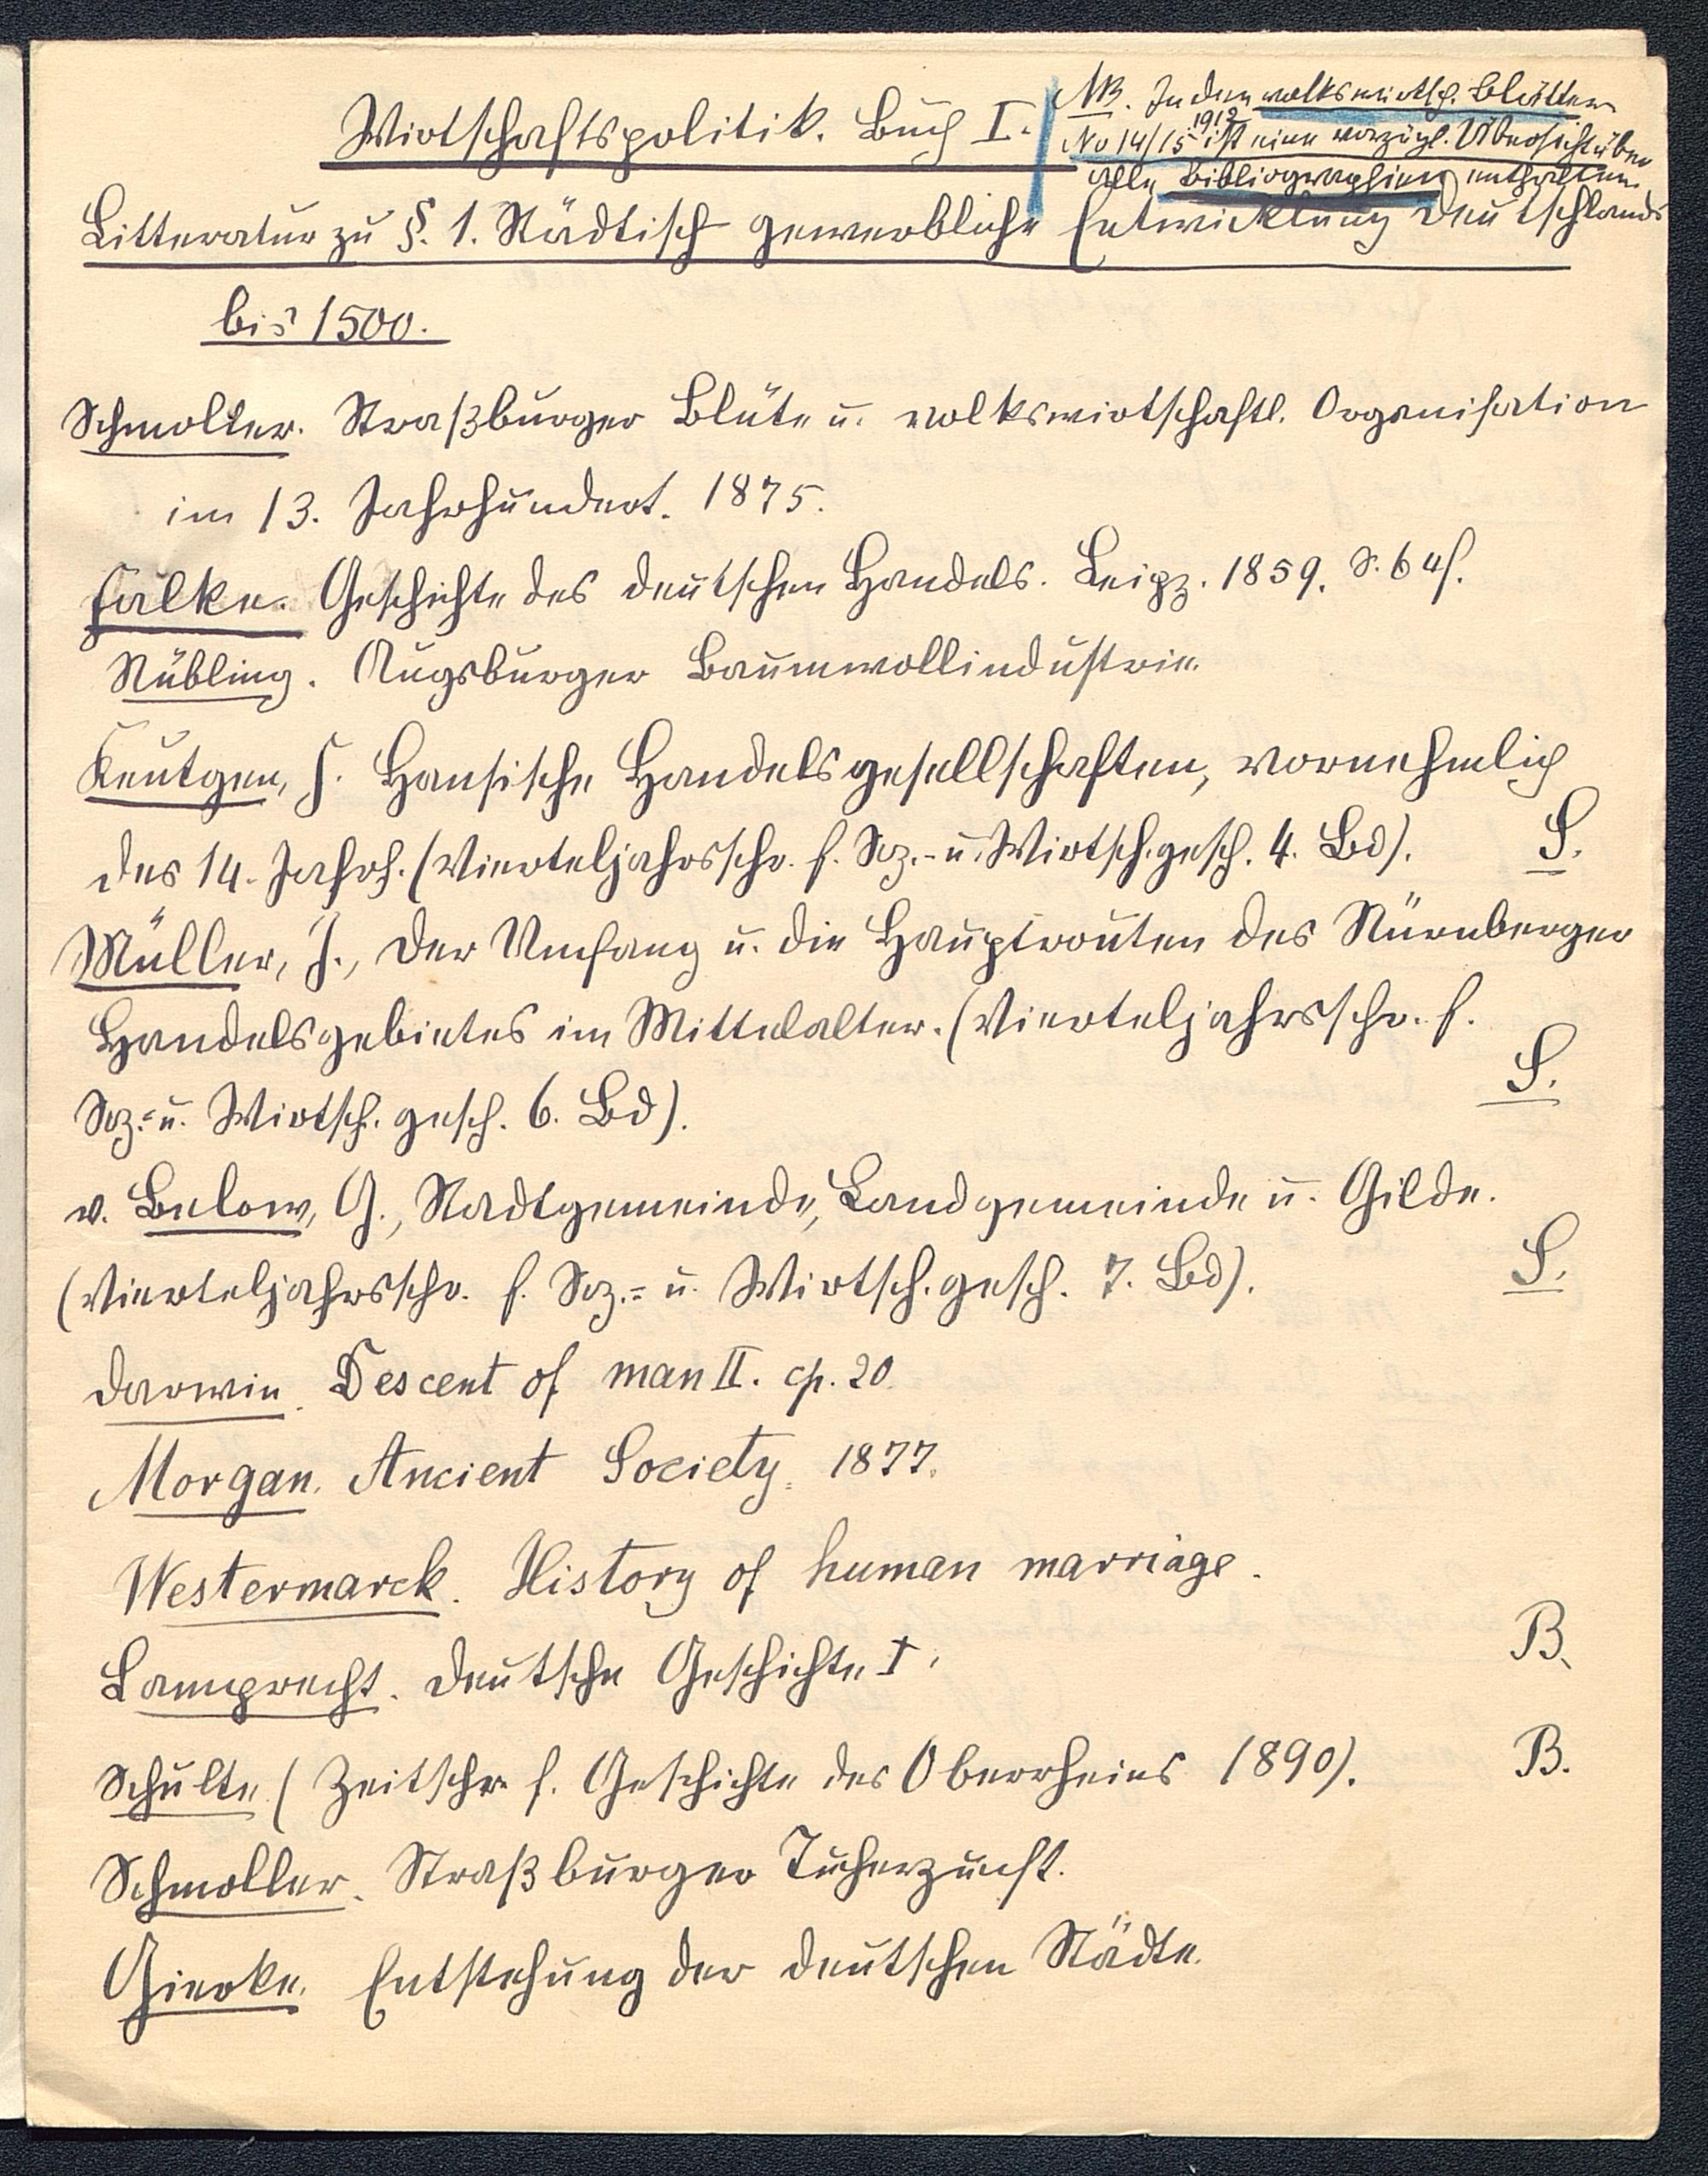 Wirtschaftspolitik. Buch I.
NB. In den volkswirtsch. Blättern
No 14/15 1912 ist eine vorzügl. Übersicht über
alle Bibliographien enthalten.
Litteratur zu §. 1. Städtisch gewerbliche Entwicklung Deutschlands
bis 1500.
Schmoller. Straßburger Blüte u. volkswirtschaftl. Organisation
im 13. Jahrhundert. 1875.
Falke. Geschichte des deutschen Handels. Leipz. 1859. S. 64f.
Nübling. Augsburger Baumwollindustrie.
Keutgen, F. Hansische Handelsgesellschaften, vornehmlich
des 14. Jahrh. (Vierteljahrsschr. f. Soz.- u. Wirtsch. gesch. 4. Bd). S.
Müller, J., Der Umfang u. die Hauptrouten des Nürnberger
Handelsgebietes im Mittelalter. (Vierteljahrsschr. f.
Soz.= u. Wirtsch. gesch. 6. Bd). S.
v. Below, G., Stadtgemeinde, Landgemeinde u. Gilde.
(Vierteljahrsschr. f. Soz.= u. Wirtsch. gesch. 7. Bd). S.
Darwin. Descent of man II. cp. 20.
Morgan. Ancient Society. 1877.
Westermarck. History of human marriage.
Lamprecht. Deutsche Geschichte I. B.
Schulte (Zeitschr. f. Geschichte des Oberrheins 1890). B.
Schmoller. Straßburger Tucherzunft.
Gierke. Entstehung der deutschen Städte.